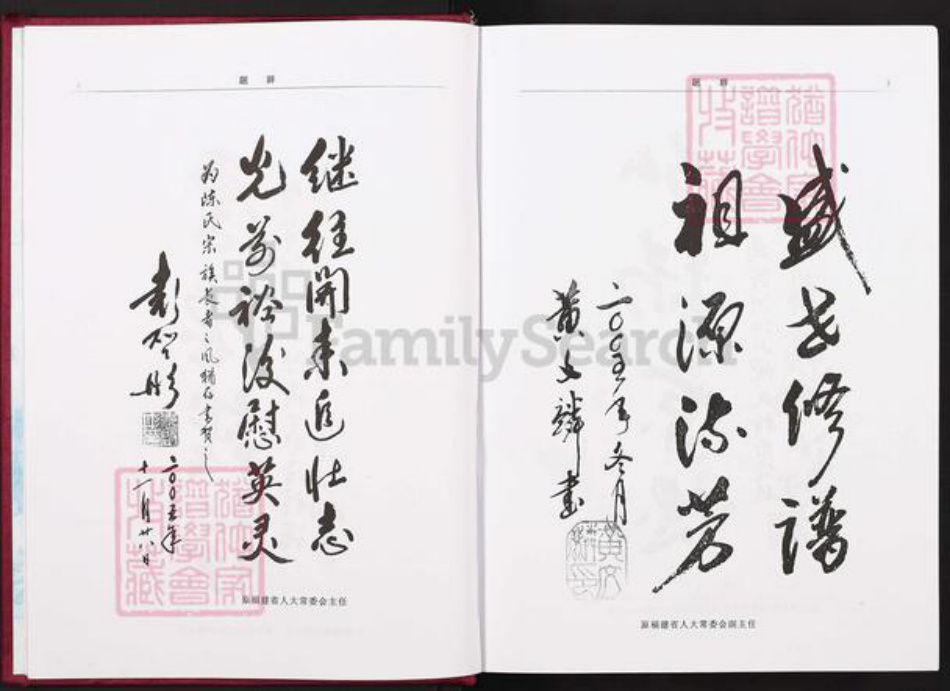 題辞
继往開来追壮志
光前裕後慰英灵
为陈氏宗族长者之风犹存书贺之
二〇〇五年
十一月廿八日
原福建省人大常委会主任
題辞
盛世修譜
祖源流芳
二〇〇五年冬月
黄文麟書
原福建省人大常委会副主任
FamilySearch